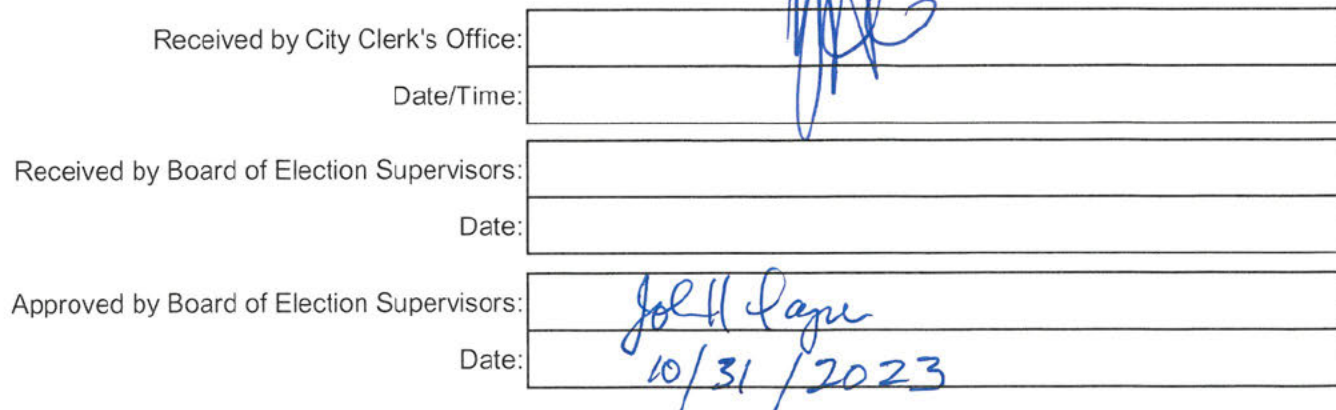 Received by City Clerk's Office:
Date/Time:
Received by Board of Election Supervisors:
Date:
Approved by Board of Election Supervisors: Joh
Date: 10/31/2023